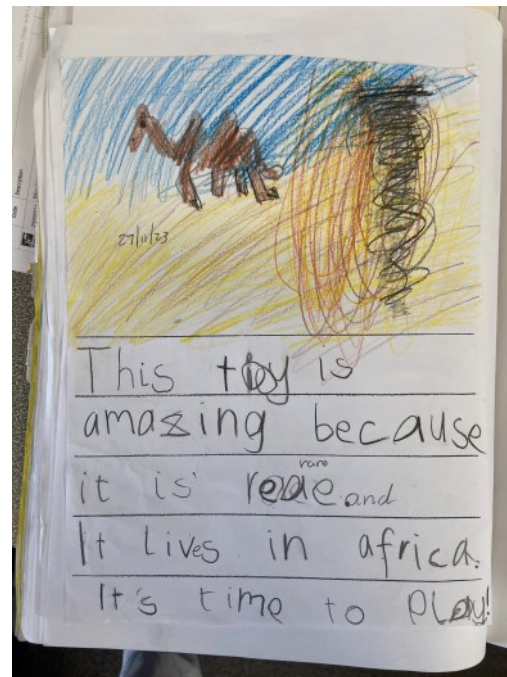 27/11/23
This toy is
amazing because
rare
it is reae.and
It Lives in africa.
It's time to PLay!